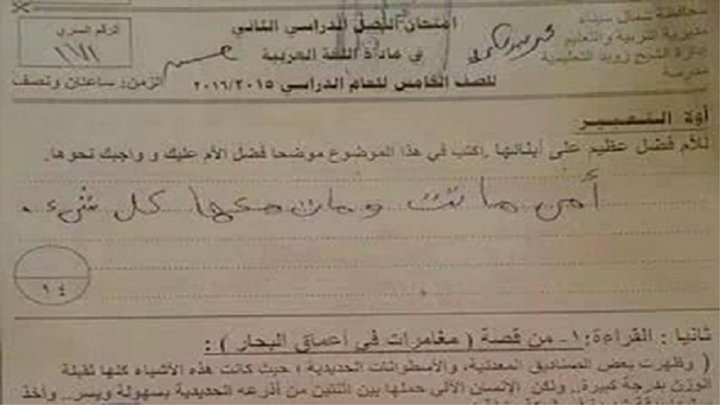 محافظة شمال سيناء
مديرية التربية والتعليم
إدارة الشيخ زويد التعليمية
مدرسة
امتحان الفصل الدراسي الثاني
في مادة اللغة العربية
للصف الخامس للعام الدراسي ٢٠١٦/٢٠١٥
الرقم السري
الزمن: ساعتان ونصف
أولا التعبير
للأم فضل عظيم على أبنائها .اكتب في هذا الموضوع موضحا فضل الأم عليك و واجبك نحوها.
أمى ماتت ومات معها كل شىء.
١٤
ثانيا : القراءة: ١- من قصة ( مغامرات في أعماق البحار ) :
( وظهرت بعض الصناديق المعدنية، والأسطوانات الحديدية ؛ حيث كانت هذه الأشياء كلها ثقيلة
الوزن بدرجة كبيرة.. ولكن الإنسان الآلي حملها بين اثنتين من أذرعه الحديدية بسهولة ويسر.. وأخذ